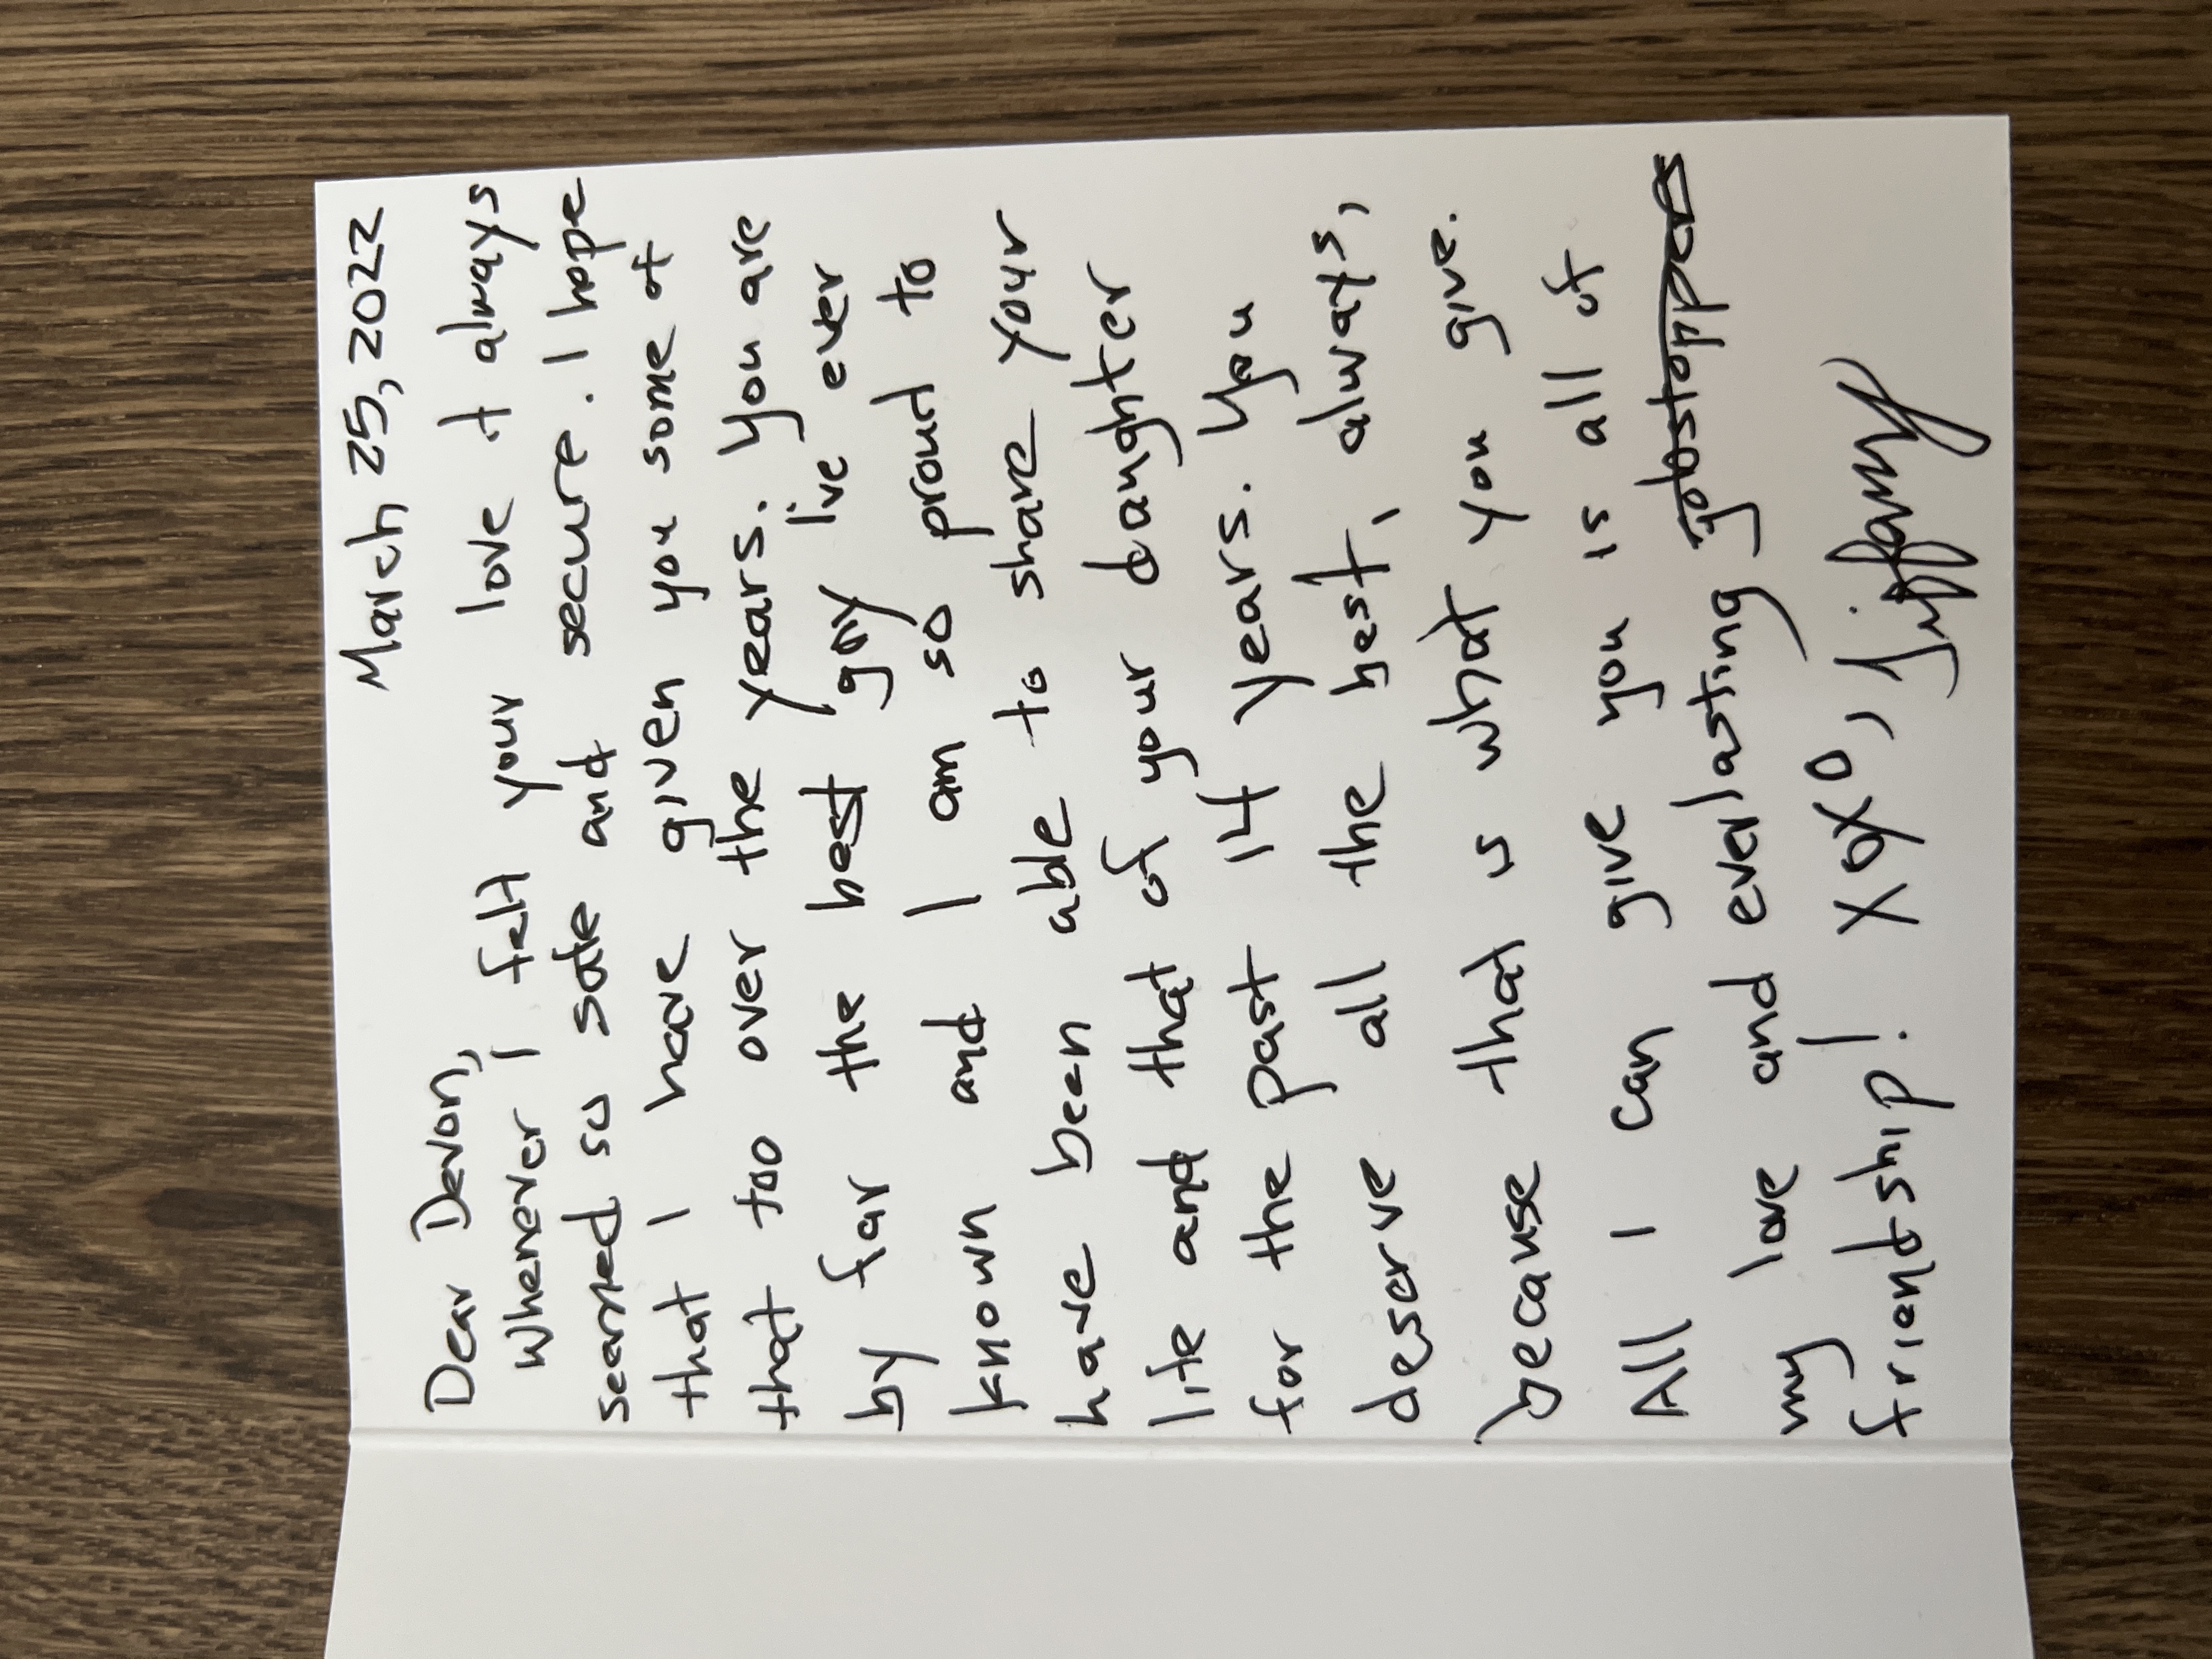 March 25, 2022
Dear Devon,
Whenever I felt your love it always
seemed so safe and secure. I hope
that I have given you some of
that too over the years. You are
by far the best guy I've ever
known and I am so proud to
have been able to share your
life and that of your daughter
for the past 14 years. You
deserve all the best, always,
because that is what you give.
All I can give you is all of
my love and everlasting
friendship! XOXO, Tiffany